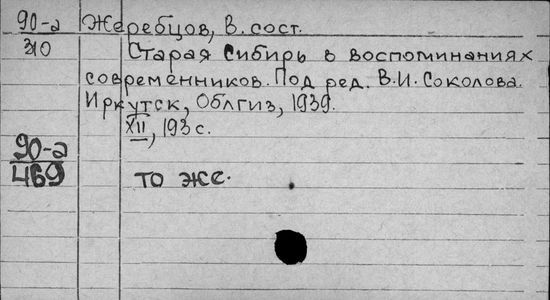 90-а Жеребцов, В. сост.
310 Старая Сибирь в воспоминаниях
современников. Под ред. В.И. Соколова.
Иркутск, Облгиз, 1939.
XII, 193 с.
90-а
469 то же.